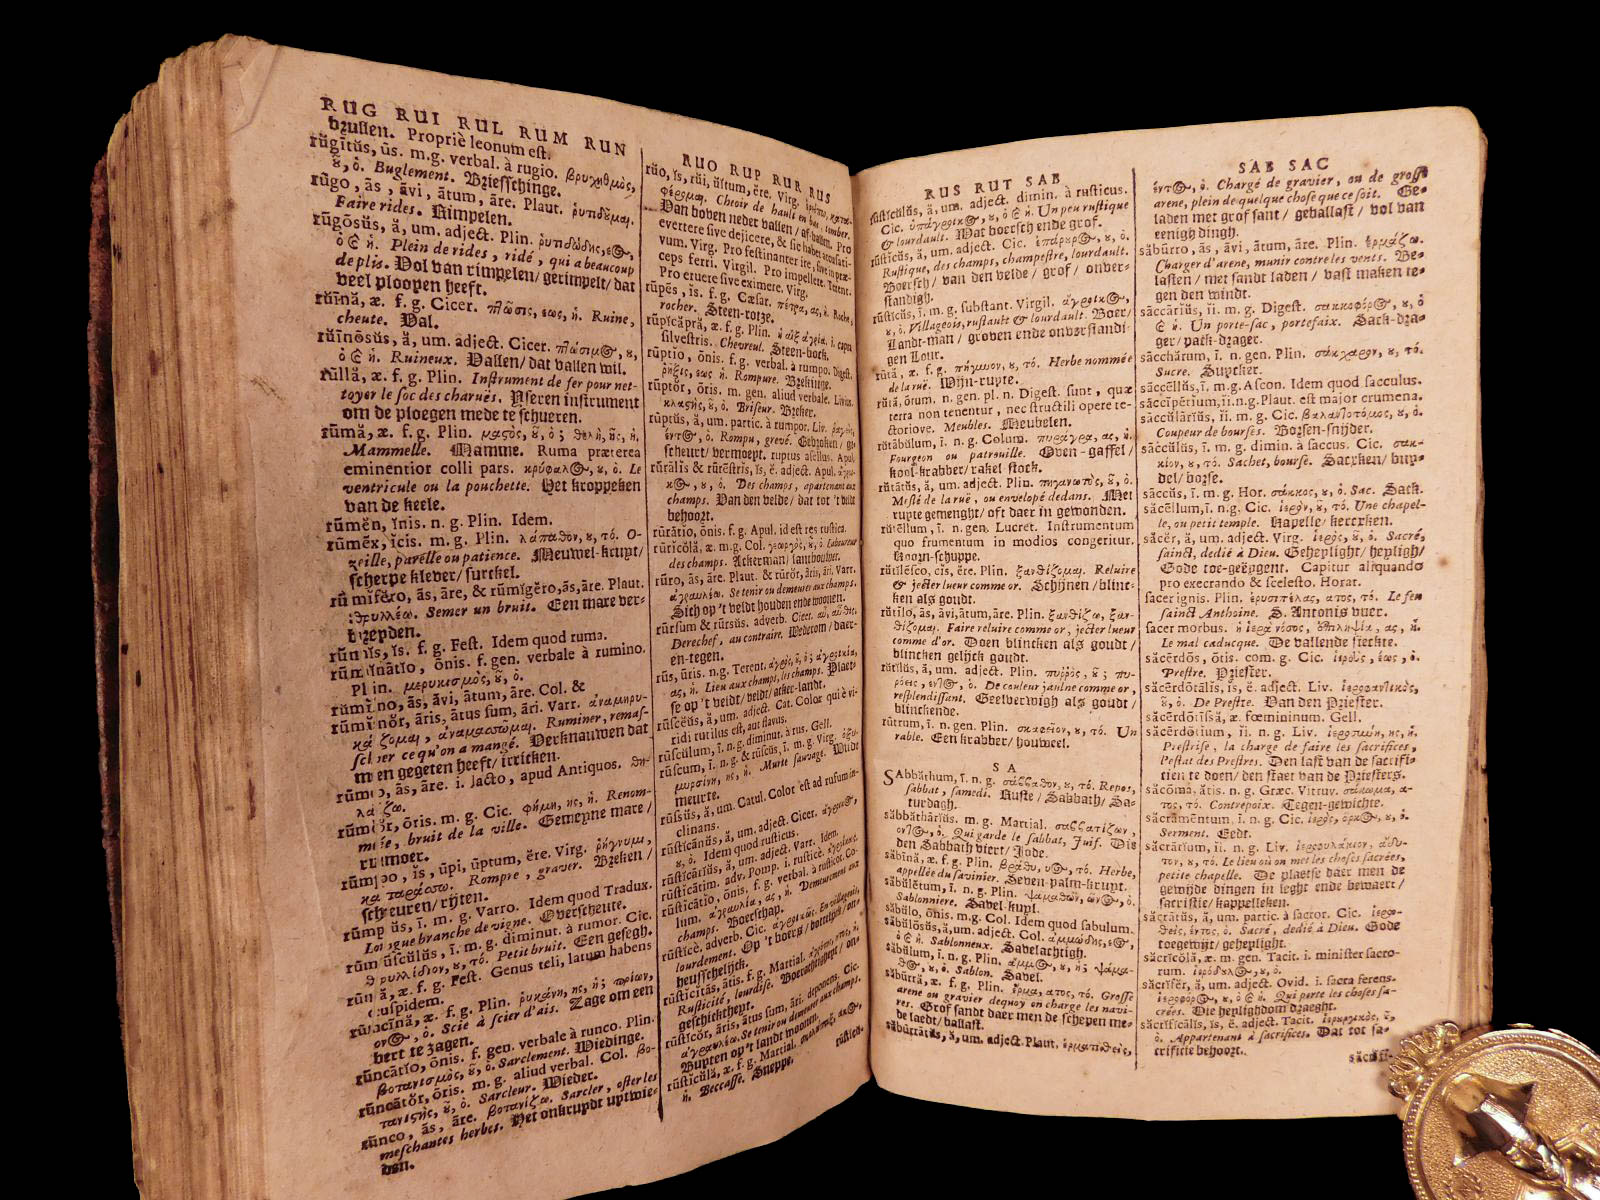 RUG RUI RUL RUM RUN
brullen. Propriè leonum est.
rūgītŭs, ūs. m.g. verbal. à rugio.
ȣ̃, ὁ. Buglement. Briesschinge.
rūgo, ās, āvi, ātum, āre. Plaut.
Faire rides. Rimpelen.
rūgōsŭs, ă, um. adject. Plin.
ὁ & ἡ. Plein de rides, ridé, qui a beaucoup
de plis. Vol van rimpelen/ gerimpelt/ dat
veel ploopen heeft.
rŭīnă, æ. f. g. Cicer. πτῶσις, εως, ἡ. Ruine,
cheute. Val.
rŭīnōsŭs, ă, um. adject. Cicer. πτώσιμος, ȣ,
ὁ & ἡ. Ruineux. Vallen/ dat vallen wil.
rŭllă, æ. f. g. Plin. Instrument de fer pour net-
toyer le soc des charuës. Yseren instrument
om de ploegen mede te schueren.
rūmă, æ. f. g. Plin. μαςὸς, ȣ̃, ὁ; θηλὴ, ῆς, ἡ.
Mammelle. Mamme. Ruma præterea
eminentior colli pars. Le
ventricule ou la pouchette. Het kroppeken
van de keele.
rūmĕn, ĭnis. n. g. Plin. Idem.
rūmĕx, ĭcis. m. g. Plin. λάπαθον, ȣ, τό. O-
zeille, parelle ou patience. Meuwel-kruyt/
scherpe klever/ surckel.
rū mĭfĕro, ās, āre, & rūmĭgĕro, ās, āre. Plaut.
Semer un bruit. Een mare ver-
breyden.
rūm ĭs, ĭs. f. g. Fest. Idem quod ruma.
rūm ĭnātĭo, ōnis. f. gen. verbale à rumino.
Plin. μερυκισμὸς, ȣ̃, ὁ.
rūmĭ no, ās, āvi, ātum, āre. Col. &
rūmĭ nŏr, āris, ātus sum, āri. Varr.
Ruminer, remas-
scher ce qu'on a mangé. Verknauwen dat
men gegeten heeft/ iricken.
rūm o, ās, āre. i. Jacto, apud Antiquos.
rūm ŏr, ōris. m. g. Cic. φήμη, ης, ἡ. Renom-
mée, bruit de la ville. Gemeyne mare/
rumoer.
rūmpo, ĭs, rūpi, ŭptum, ĕre. Virg. ῥήγνυμι,
Rompre, graver. Breken/
scheuren/ rijten.
rūmp ŭs, ī, m. g. Varro. Idem quod Tradux.
Longue branche de vigne. Overscheute.
rūm ŭscŭlŭs, ī, m. g. diminut. à rumor. Cic.
Petit bruit. Een gesegh.
rūn ă, æ. f. g. Fest. Genus teli, latum habens
cuspidem.
rūncīnă, æ. f. g. Plin.
ὁ. Scie à scier d'ais. Zage om een
bert te zagen.
rūncātĭo, ōnis. f. gen. verbale à runco. Plin.
βοτανισμὸς, ȣ̃, ὁ. Sarclement. Wiedinge.
rūncātŏr, ōris. m. g. aliud verbal. Col. βο-
τανιςὴς, ȣ̃, ὁ. Sarcleur. Wieder.
rūnco, ās, āre. βοτανίζω. Sarcler, oster les
meschantes herbes. Het onkruydt uptwie-
den.
RUO RUP RUR RUS
rŭo, ĭs, rŭi, ŭĭtum, ĕre. Virg.
Cheoir de hault en bas, tomber.
Van boven neder vallen/ af vallen. Pro
evertere sive dejicere, & sic habet accusati-
vum. Virg. Pro festinanter ire, sive in præ-
ceps ferri. Virgil. Pro impellere. Terent.
Pro eruere sive eximere. Virg.
rūpēs, ĭs. f. g. Cæsar. πέτρα, ας, ἡ. Roche,
rocher. Steen-rotze.
rūpĭcāpră, æ. f. g. Plin. i. capra
silvestris. Chevreul. Steen-bock.
rūptĭo, ōnis. f. g. verbal. à rumpo. Digest.
ῥῆξις, εως ἡ. Rompure. Brekinge.
rūptŏr, ōris. m. gen. aliud verbale. Livius.
ȣ̃, ὁ. Briseur. Breker.
rūptŭs, ă, um. partic. à rumpor. Liv.
ὁ. Rompu, grevé. Gebroken/ ge-
scheurt/ vermoeyt. ruptus asellus. Apul.
rūrālis & rūrēstris, ĭs, ĕ. adject. Apul.
Des champs, apartenant aux
champs. Van den velde/ dat tot 't veldt
behoort.
rūrātĭo, ōnis. f. g. Apul. id est res rustica.
rūrĭcŏlă, æ. m. g. Col. γεωργὸς, ȣ̃, ὁ. Laboureur
des champs. Ackerman/ lanthouwer.
rūro, ās, āre. Plaut. & rūrŏr, āris, āri. Varr.
Se tenir ou demeurer aux champs.
Sich op 't veldt houden ende woonen.
rūrsum & rūrsŭs. adverb. Cicer. αὖ, αὖθις.
Derechef, au contraire. Wederom/ daer-
en-tegen.
rūs, ūris. n.g. Terent. ἀγρὸς, ȣ̃, ὁ;
ας, ἡ. Lieu aux champs, les champs. Plaet-
se op 't veldt/ veldt/ acker-landt.
rūscĕŭs, ă, um. adject. Cat. Color qui è vi-
ridi rutilus est, aut flavus.
rūscŭlum, ī, n.g. diminut. à rus. Gell.
rūscum, ī, n. g. & rūscŭs, ī, m. g. Virg.
μυρσίνη, ης, ἡ. Murte sauvage. Wilde
meurte.
rūssŭs, ă, um. Catul. Color est ad rufum in-
clinans.
rūstĭcānŭs, ă, um. adject. Cicer.
ȣ, ὁ. Idem quod rusticus.
rūstĭcārĭŭs, ă, um. adject. Varr. Idem.
rūstĭcātim. adv. Pomp. i. rusticè.
rūstĭcātĭo, ōnis. f. g. verbal. à rusticor. Co-
lum. ἀγραυλία, ας, ἡ. Demeurement aux
champs. Boerschap.
rūstĭcē, adverb. Cic. ἀγροίκως. En villageois,
lourdement. Op 't boers/ botteliick/ on-
heusschelijck.
rūstĭcĭtās, ātis. f. g. Martial.
Rusticité, lourdise. Boerachtigheyt/ on-
geschicktheyt.
rūstĭcŏr, āris, ātus sum, āri. deponens. Cic.
ἀγραυλέω. Se tenir ou demeurer aux champs.
Buyten op 't landt woonen.
rūstĭcŭlă, æ. f. g. Martial.
ἡ. Beccasse. Sneppe.
rūstĭcŭ-
RUS RUT SAB
rūstĭcŭlŭs, ă, um. adject. dimin. à rusticus.
Cic. ὁ & ἡ. Un peu rustique
& lourdault. Wat boersch ende grof.
rūstĭcŭs, ă, um. adject. Cic.
Rustique, des champs, champestre, lourdault.
Boersch/ van den velde/ grof/ onver-
standigh.
rūstĭcŭs, ī, m. g. substant. Virgil. ἄγροικος,
ȣ, ὁ. Villageois, rustault & lourdault. Boer/
Landt-man/ groven ende onverstandi-
gen Lour.
rūtă, æ. f. g. πήγανον, ȣ, τό. Herbe nommée
de la ruë. Wijn-ruyte.
rūtă, ōrum. n. gen. pl. n. Digest. sunt, quæ
terra non tenentur, nec structili opere te-
ctoriove. Meubles. Meubelen.
rŭtābŭlum, ī, n. g. Colum. πυράγρα, ας, ἡ.
Fourgeon ou patrouille. Oven-gaffel/
kool-krabber/ rakel stock.
rūtātŭs, ă, um. adject. Plin. πηγανωτὸς, ȣ̃, ὁ.
Meslé de la ruë, ou envelopé dedans. Met
ruyte gemenght/ oft daer in gewonden.
rŭtēllum, ī, n. gen. Lucret. Instrumentum
quo frumentum in modios congeritur.
Koorn-schuppe.
rŭtĭlēsco, cĭs, ĕre. Plin. ξανθίζομαι. Reluire
& jecter lueur comme or. Schijnen/ blinc-
ken als goudt.
rŭtĭlo, ās, āvi, ātum, āre. Plin. ξανθίζω, ξαν-
θίζομαι. Faire reluire comme or, jecter lueur
comme d'or. Doen blincken als goudt/
blincken gelijck goudt.
rŭtĭlŭs, ă, um. adject. Plin. πυῤῥὸς, ȣ̃; πυ-
ρόεις, ὁ. De couleur jaulne comme or,
resplendissant. Geelverwigh als goudt/
blinckende.
rŭtrum, ī, n. gen. Plin. σκαφεῖον, ȣ, τό. Un
rable. Een krabber/ houweel.
SA
SAbbăthum, ī, n. g. σάββαθον, ȣ, τό. Repos,
sabbat, samedi. Ruste/ Sabbath/ Sa-
turdagh.
săbbăthārĭŭs. m. g. Martial. σαββατίζων,
οντος, ὁ. Qui garde le sabbat, Juif. Die
den Sabbath viert/ Jode.
săbīnă, æ. f. g. Plin. βράθυ, υος, τό. Herbe,
appellée du savinier. Seven-palm-kruyt.
săbŭlētum, ī, n. g. Plin. ψαμαθὼν, ῶνος, ὁ.
Sablonniere. Savel-kuyl.
săbŭlo, ōnis. m.g. Col. Idem quod sabulum.
săbŭlōsŭs, ă, um. adject. Col. ἀμμώδης, εος,
ὁ & ἡ. Sablonneux. Savelachtigh.
săbŭlum, ī, n. g. Plin. ἄμμος, ȣ, ἡ; ψάμα-
θος, ȣ, ὁ. Sablon. Savel.
săbūrră, æ. f. g. Plin. ἕρμα, ατος, τό. Grosse
arene ou gravier dequoy on charge les navi-
res. Grof sandt daer men de schepen me-
de laedt/ ballast.
săbūrrātŭs, ă, um. adject. Plaut. ἑρματιθεὶς,
SAB SAC
έντος, ὁ. Chargé de gravier, ou de grosse
arene, plein de quelque chose que ce soit. Ge-
laden met grof sant/ geballast/ vol van
eenigh dingh.
săbūrro, ās, āvi, ātum, āre. Plin. ἑρμάζω.
Charger d'arene, munir contre les vents. Be-
lasten/ met sandt laden/ vast maken te-
gen den windt.
săccārĭŭs, ĭi, m. g. Digest. σακκοφόρος, ȣ, ὁ
& ἡ. Un porte-sac, portefaix. Sack-dra-
ger/ pack-drager.
săcchărum, ī. n. gen. Plin. σάκχαρον, ȣ, τό.
Sucre. Suycker.
săccēllŭs, ī, m. g. Ascon. Idem quod sacculus.
săccĭpērĭum, ĭi. n.g. Plaut. est major crumena.
săccŭlārĭŭs, ĭi. m. g. Cic. βαλαντιοτόμος, ȣ, ὁ.
Coupeur de bourses. Borsen-snijder.
săccŭlŭs, ī. m. g. dimin. à saccus. Cic. σακ-
κίον, ȣ, τό. Sachet, bourse. Sacxken/ buy-
del/ borse.
săccŭs, ī, m. g. Hor. σάκκος, ȣ, ὁ. Sac. Sack.
săcēllum, ī, n.g. Cic. ἱερὸν, ȣ̃, τό. Une chapel-
le, ou petit temple. Kapelle/ kercxken.
săcĕr, ă, um. adject. Virg. ἱερὸς, ȣ̃, ὁ. Sacré,
sainct, dedié à Dieu. Geheylight/ heyligh/
Gode toe-geëygent. Capitur aliquando
pro execrando & scelesto. Horat.
sacer ignis. Plin. ἐρυσιπέλας, ατος, τό. Le feu
sainct Anthoine. S. Antonis vuer.
sacer morbus. ἡ ἱερὰ νόσος, ἐπιληψία, ας, ἡ.
Le mal caducque. De vallende sieckte.
săcērdōs, ōtis. com. g. Cic. ἱερεὺς, έως, ὁ.
Prestre. Priester.
săcērdōtālis, ĭs, ĕ. adject. Liv. ἱεροφαντικὸς,
ȣ̃, ὁ. De Prestre. Van den Priester.
săcērdōtĭssă, æ. fœmininum. Gell.
săcērdōtĭum, ĭi. n. g. Liv. ἱερωσύνη, ης, ἡ.
Prestrise, la charge de faire les sacrifices,
l'estat des Prestres. Den last van de sacrifi-
tien te doen/ den staet van de Priesters.
săcōmă, ătis. n. g. Græc. Vitruv. σάκωμα, α-
τος, τό. Contrepoix. Tegen-gewichte.
săcrāmēntum, ī. n. g. Cic. ἱερὸς, ὅρκος, ȣ, ὁ.
Serment. Eedt.
săcrārĭum, ĭi. n. g. Liv. ἱεροφυλάκιον, ἄδυ-
τον, ȣ, τό. Le lieu où on met les choses sacrées,
petite chapelle. De plaetse daer men de
gewijde dingen in leght ende bewaert/
sacristie/ kappelleken.
săcrātŭs, ă, um. partic. à sacror. Cic. ἱερω-
θεὶς, έντος, ὁ. Sacré, dedié à Dieu. Gode
toegewijt/ geheylight.
săcrĭcŏlă, æ. m. gen. Tacit. i. minister sacro-
rum. ἱερόδȣλος, ȣ, ὁ.
săcrĭfĕr, ă, um. adject. Ovid. i. sacra ferens.
ἱεροφόρος, ȣ, ὁ & ἡ. Qui porte les choses sa-
crées. Die heylighdom draeght.
săcrĭfĭcālis, ĭs, ĕ. adject. Tacit. ἱερȣργικὸς, ȣ̃,
ὁ. Appartenant à sacrifices. Dat tot sa-
crificie behoort.
săcrĭfĭ-